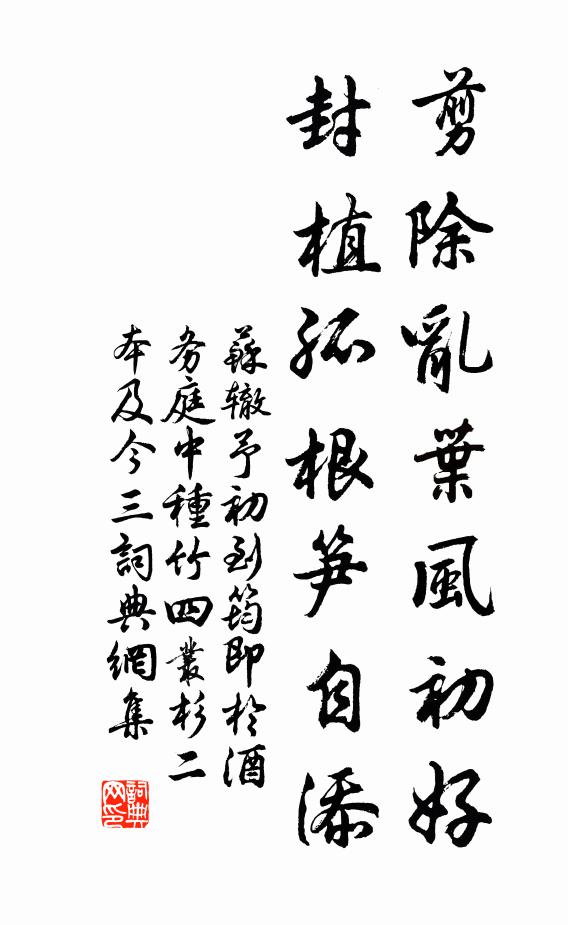 剪除亂葉風初好
封植孤根笋自添
蘇轍予初到筠即於酒
务庭中種竹四叢杉二
本及今三詞典網集
詞典
网印